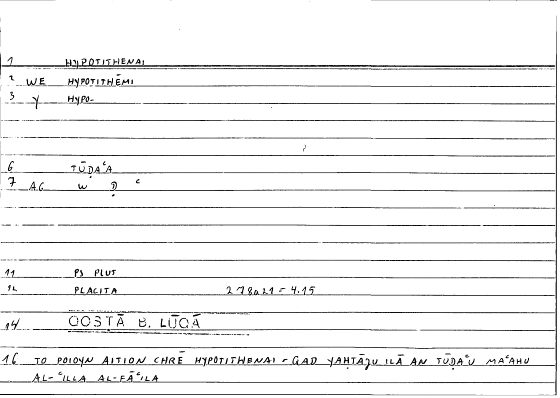 1 HYPOTITHENAI
2 WE HYPOTITHĒMI
3 Y HYPO-
6 TŪḌAʿA
7 AG W Ḍ ʿ
11 PS PLUT
12 PLACITA 278a21 = 4.15
14 QOSṬĀ B. LŪQĀ
16 TO POIOYN AITION CHRĒ HYPOTITHENAI = QAD YAḤTĀǦU ILĀ AN TŪḌAʿU MAʿAHU
AL-ʿILLA AL-FĀʿILA